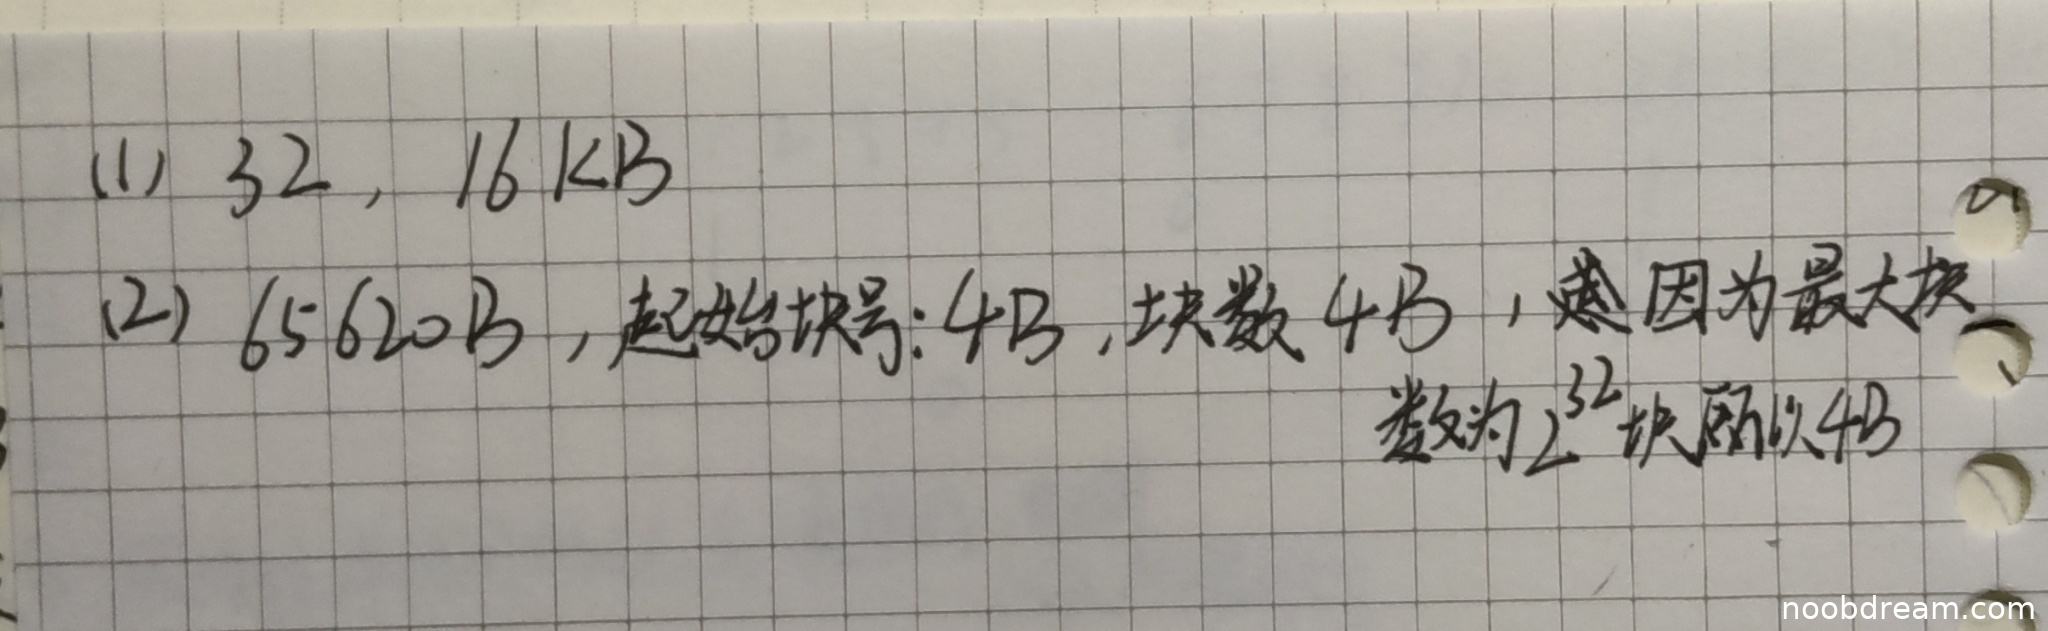 (1) 32, 16KB
(2) 65620B, 起始块号: 4B, 块数 4B, 因为最大块
数为2^32块所以4B
noobdream.com